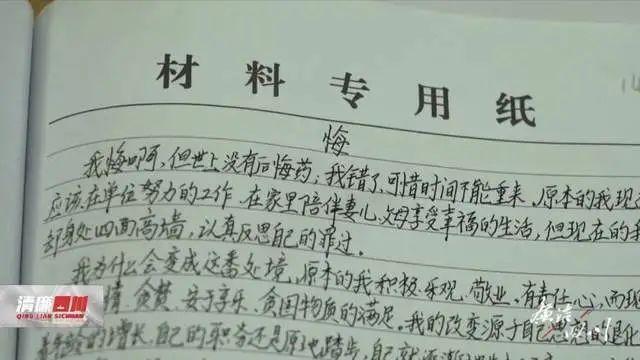 材料专用纸
悔
我悔啊,但世上没有后悔药;我错了,可惜时间不能重来。原本的我现
应该在单位努力的工作,在家里陪伴妻儿、父母享受幸福的生活,但现在的我
却身处四面高墙,认真反思自己的罪过。
我为什么会变成这番处境,原本的我积极、乐观、敬业、有责任心,而现
惰、贪婪、安于享乐、贪图物质的满足。我的改变源于自己思想的退化
着年龄的增长,自己的职务还是原地踏步,自己就逐渐
清廉四川
QING LIAN SICHUAN
廉洁四川